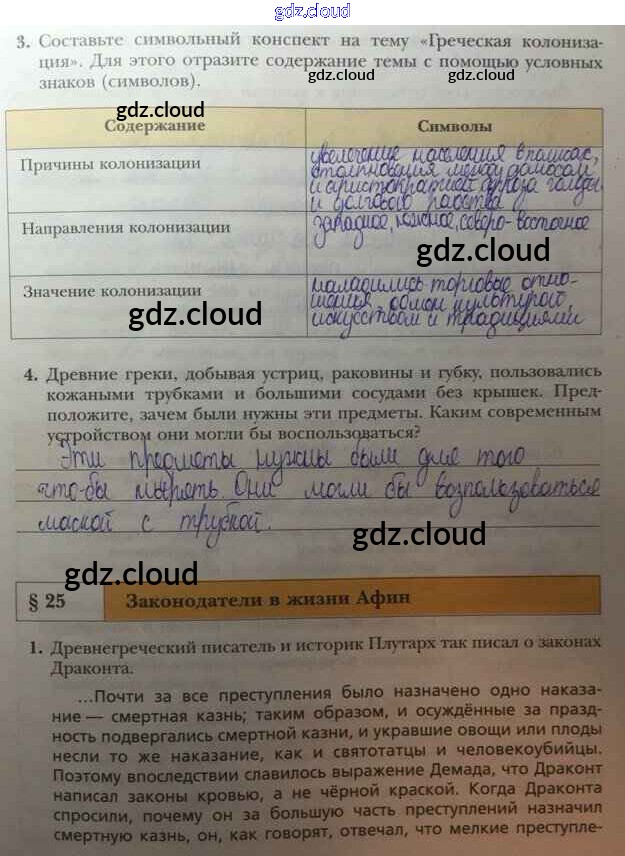 gdz.cloud
3. Составьте символьный конспект на тему «Греческая колониза-
ция». Для этого отразите содержание темы с помощью условных
gdz.cloud gdz.cloud
знаков (символов).
gdz.cloud
Содержание Символы
Причины колонизации
увеличение населения в полисах,
столкновения между демосом
и аристократией, угроза голода
и долгового рабства
Направления колонизации
западное, южное, северо-восточное
gdz.cloud
Значение колонизации
наладились торговые отно-
шения, обмен культурой,
gdz.cloud
искусством и традициями
4. Древние греки, добывая устриц, раковины и губку, пользовались
кожаными трубками и большими сосудами без крышек. Пред-
положите, зачем были нужны эти предметы. Каким современным
gdz.cloud
устройством они могли бы воспользоваться?
Эти предметы нужны были для того
что-бы нырять. Они могли бы возпользоваться
маской с трубкой.
gdz.cloud
gdz.cloud
§ 25 Законодатели в жизни Афин
1. Древнегреческий писатель и историк Плутарх так писал о законах
Драконта.
...Почти за все преступления было назначено одно наказа-
ние — смертная казнь; таким образом, и осуждённые за празд-
ность подвергались смертной казни, и укравшие овощи или плоды
несли то же наказание, как и святотатцы и человекоубийцы.
Поэтому впоследствии славилось выражение Демада, что Драконт
написал законы кровью, а не чёрной краской. Когда Драконта
спросили, почему он за большую часть преступлений назначил
смертную казнь, он, как говорят, отвечал, что мелкие преступле-